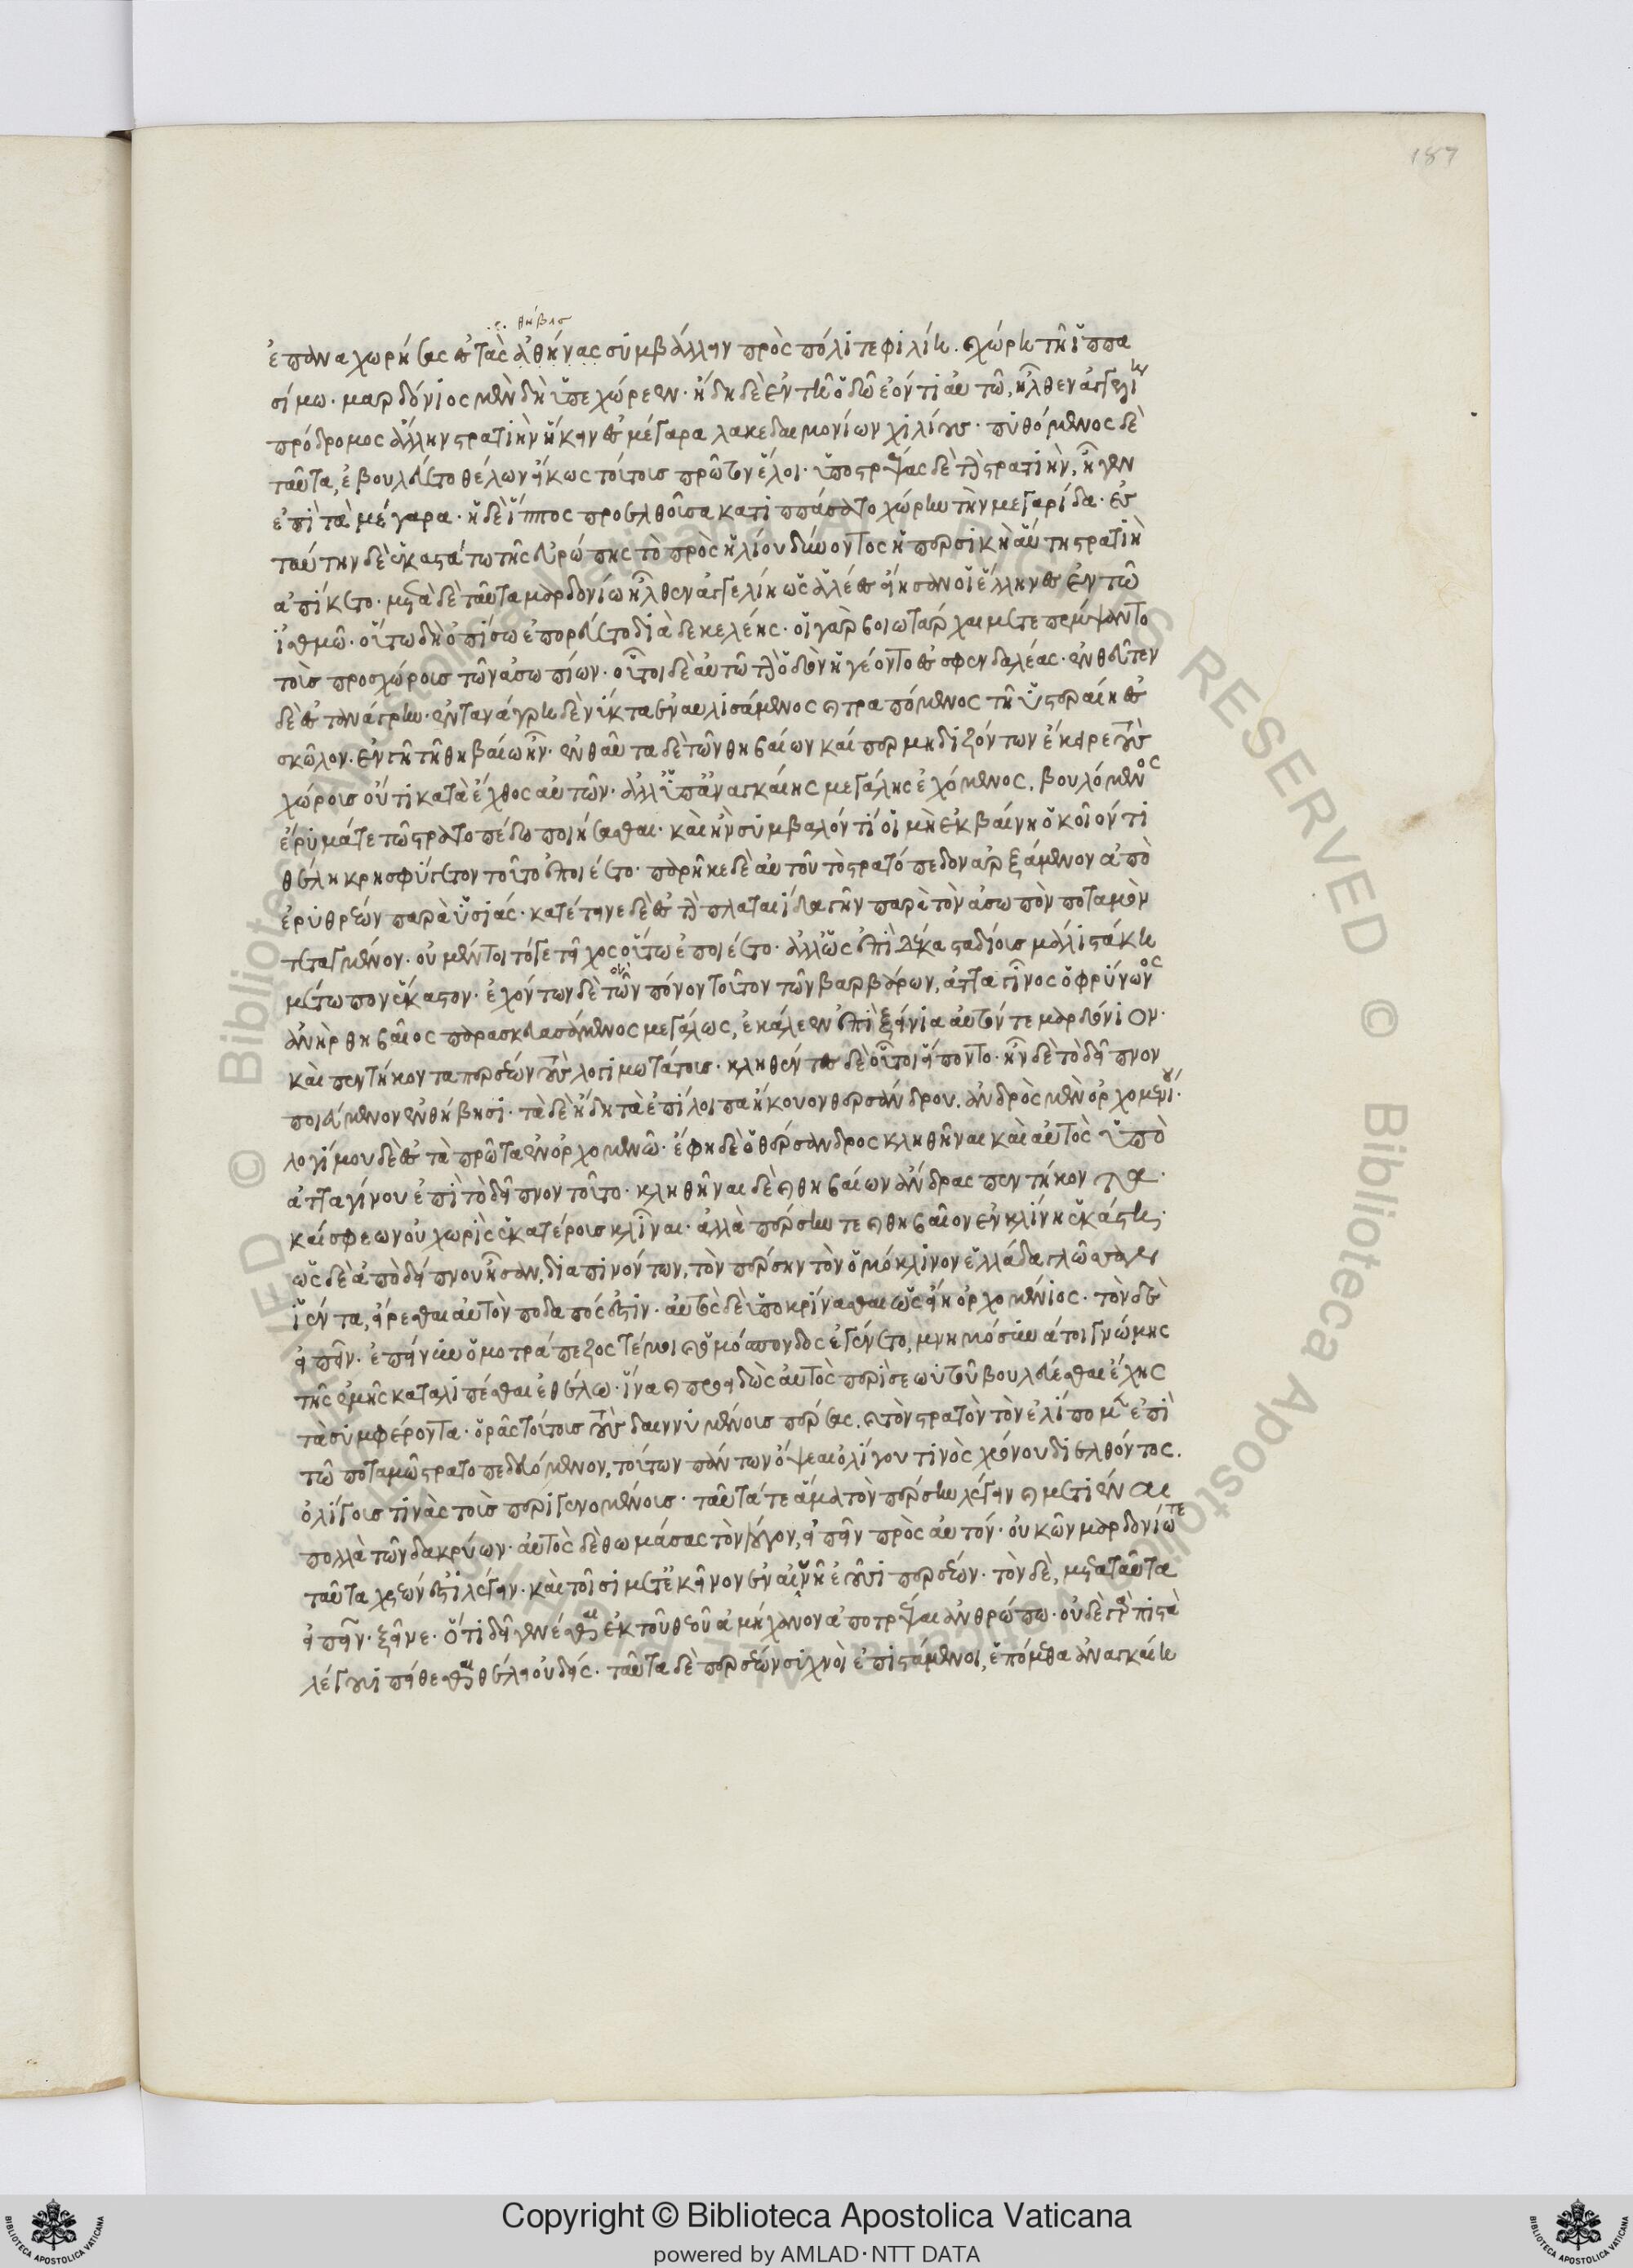 187
θήβας
ἐπαναχωρήσας ἐς τὰς ἀθήνας συμβάλλειν πρὸς πόλι τε φιλίην. καὶ χώρην τῆ ἱππα
σίμω. μαρδόνιος μὲν δὴ ὑπεχώρεεν. ἤδη δὲ ἐν τῆ ὁδῶ ἐόντι αὐτῶ, ἦλθεν ἀγγελίη
πρόδρομος ἄλλην στρατιὴν ἥκειν ἐς μέγαρα λακεδαιμονίων χιλίους. πυθόμενος δὲ
ταῦτα, ἐβουλεύετο θέλων εἴκως τούτους πρῶτον ἕλοι. ὑποστρέψας δὲ τὴν στρατιὴν, ἦγεν
ἐπὶ τὰ μέγαρα. ἡ δὲ ἵππος προελθοῦσα κατιππάσατο χώρην τὴν μεγαρίδα. ἐς
ταύτην δὲ ἑκαστάτω τῆς εὐρώπης τὸ πρὸς ἡλίου δύνοντος ἡ περσικὴ αὕτη στρατιὴ
ἀπίκετο. μετὰ δὲ ταῦτα μαρδονίω ἦλθεν ἀγγελίη ὡς ἁλέες εἴησαν οἱ ἕλληνες ἐν τῶ
ἰσθμῶ. οὕτω δὴ ὀπίσω ἐπορεύετο διὰ δεκελέης. οἱ γὰρ βοιωτάρχαι μετεπέμψαντο
τοὺς προσχώρους τῶν ἀσωπίων. οὗτοι δὲ αὐτῶ τὴν ὁδὸν ἡγέοντο ἐς σφενδαλέας. ἐνθεῦτεν
δὲ ἐς τανάγρην. ἐν ταναγρη δὲ νύκτα ἐναυλισάμενος καὶ τραπόμενος τῆ ὑστεραίη ἐς
σκῶλον. ἐν γῆ τῆ θηβαίων ἦν. ἐνθαῦτα δὲ τῶν θηβαίων καίπερ μηδιζόντων ἔκειρε τοὺς
χώρους οὔτι κατὰ ἔχθος αὐτῶν. ἀλλ' ὑπ' ἀναγκαίης μεγάλης ἐχόμενος. βουλόμενος
ἔρυμά τε τῶ στρατοπέδω ποιήσασθαι. καὶ ἢν συμβαλόντι οἱ μὴ ἐκβαίνη ὁκοῖόν τι
θέλη κρησφύγετον τοῦτο ἐποιέετο. παρῆκε δὲ αὐτοῦ τὸ στρατόπεδον ἀρξάμενον ἀπὸ
ἐρυθρέων παρὰ ὑσιάς. κατέτεινε δὲ ἐς τὴν πλαταιίδα γῆν παρὰ τὸν ἀσωπὸν ποταμὸν
τεταγμένον. οὐ μέντοι τό γε τεῖχος οὕτω ἐποιέετο. ἀλλ' ὡς ἐπὶ δέκα σταδίους μάλιστά κη
μέτωπον ἕκαστον. ἐχόντων δὲ τῶν πόνον τοῦτον τῶν βαρβάρων, ἀτταγῖνος ὁ φρύνωνος
ἀνὴρ θηβαῖος παρασκευασάμενος μεγάλως, ἐκάλεεν ἐπὶ ξείνια αὐτόν τε μαρδόνιον.
καὶ πεντήκοντα περσέων τοὺς λογιμωτάτους. κληθέντες δὲ οὗτοι εἵποντο. ἦν δὲ τὸ δεῖπνον
ποιεύμενον ἐν θήβησι. τὰ δὲ ἤδη τὰ ἐπίλοιπα ἤκουον θερσάνδρου. ἀνδρὸς μὲν ὀρχομενίου.
λογίμου δὲ ἐς τὰ πρῶτα ἐν ὀρχομενῶ. ἔφη δὲ ὁ θέρσανδρος κληθῆναι καὶ αὐτὸς ὑπὸ
ἀτταγίνου ἐπὶ τὸ δεῖπνον τοῦτο. κληθῆναι δὲ καὶ θηβαίων ἄνδρας πεντήκοντα.
καί σφεων οὐ χωρὶς ἑκατέρους κλῖναι. ἀλλὰ πέρσην τε καὶ θηβαῖον ἐν κλίνη ἑκάστη.
ὡς δὲ ἀπὸ δείπνου ἦσαν, διαπινόντων, τὸν πέρσην τὸν ὁμόκλινον ἑλλάδα γλῶσσαν
ἱέντα, εἴρεσθαι αὐτὸν ποδαπός ἐστιν. αὐτὸς δὲ ὑποκρίνασθαι ὡς εἴη ὀρχομένιος. τὸν δὲ
εἰπεῖν. ἐπεὶ νῦν ὁμοτράπεζός τέ μοι καὶ ὁμόσπονδος ἐγένεο, μνημόσυνά τοι γνώμης
τῆς ἐμῆς καταλιπέσθαι ἐθέλω. ἵνα καὶ προειδὼς αὐτὸς περὶ σεωυτοῦ βουλεύεσθαι ἔχης
τὰ συμφέροντα. ὁρᾶς τούτους τοὺς δαινυμένους πέρσας. καὶ τὸν στρατὸν τὸν ἐλίπομεν ἐπὶ
τῶ ποταμῶ στρατοπεδευόμενον, τούτων πάντων ὄψεαι ὀλίγου τινὸς χρόνου διελθόντος.
ὀλίγους τινὰς τοὺς περιγενομένους. ταῦτά τε ἅμα τὸν πέρσην λέγειν καὶ μετιέναι
πολλὰ τῶν δακρύων. αὐτὸς δὲ θωμάσας τὸν λόγον, εἰπεῖν πρὸς αὐτόν. οὐκῶν μαρδονίω τε
ταῦτα χρεών ἐστι λέγειν. καὶ τοῖσι μετ' ἐκεῖνον ἐν αἴνη ἐοῦσι περσέων. τὸν δὲ, μετὰ ταῦτα
εἰπεῖν. ξεῖνε. ὅτι δεῖ γενέσθαι ἐκ τοῦ θεοῦ ἀμήχανον ἀποτρέψαι ἀνθρώπω. οὐδὲ γὰρ πιστὰ
λέγουσι πείθεσθαι θέλει οὐδείς. ταῦτα δὲ περσέων συχνοὶ ἐπιστάμενοι, ἑπόμεθα ἀναγκαίη
Copyright © Biblioteca Apostolica Vaticana
powered by AMLAD·NTT DATA